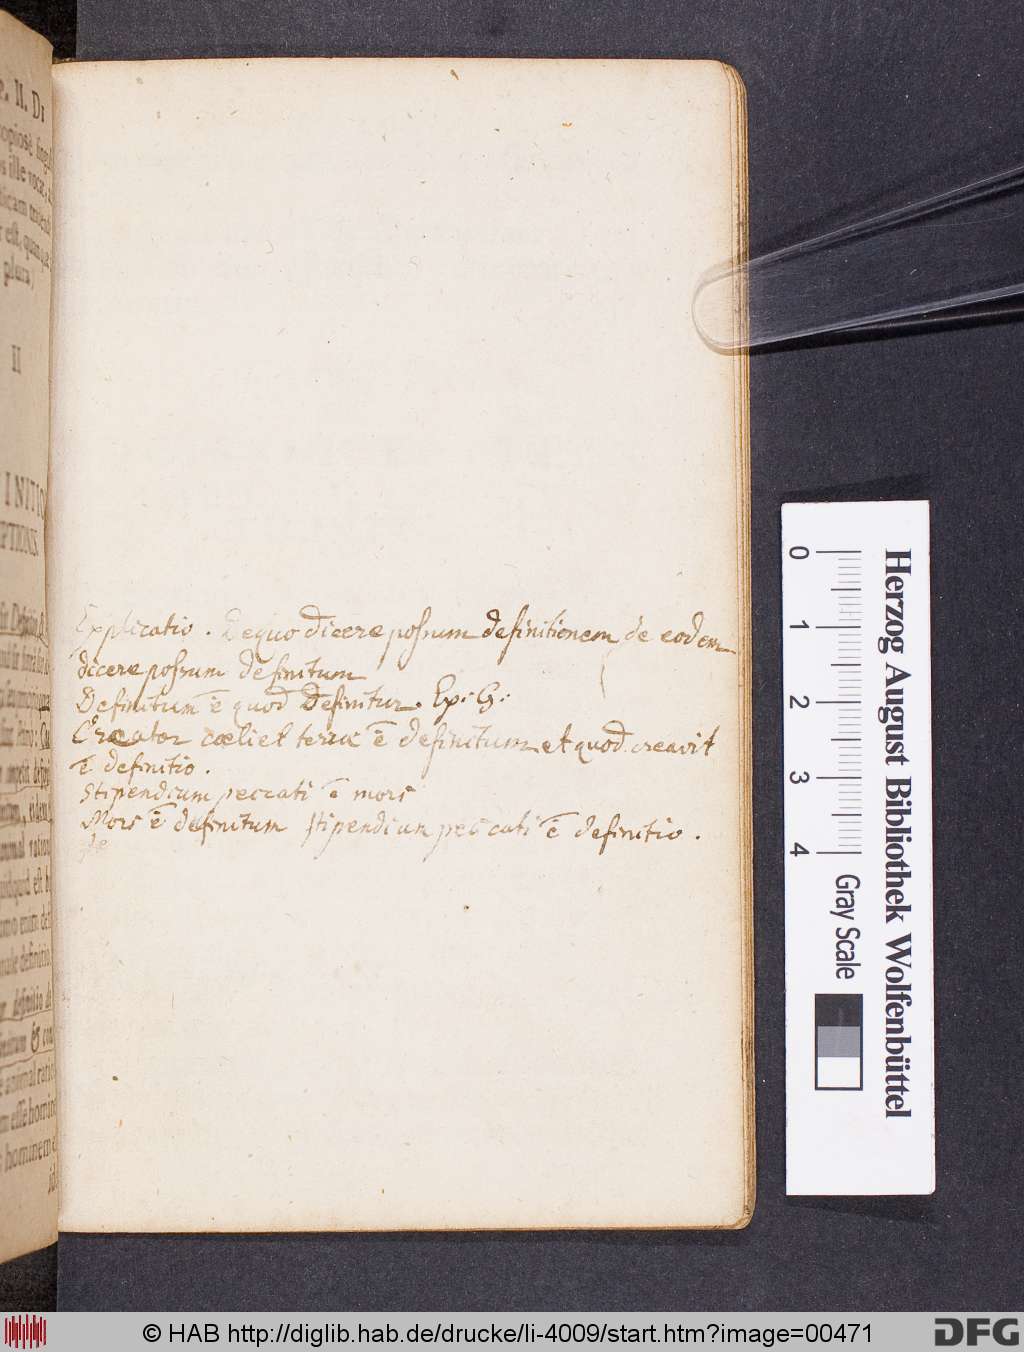 P. II. DI
copiosè
ille vocat
est, quam
plura)
II
INITIO
PTIONIS.
Explicatio. De quo dicere possum definitionem de eodem
dicere possum definitum
Definitum ē quod Definitur. Ex: G:
Creator cœli et terræ ē definitum et quod creavit
ē definitio.
Stipendium peccati ē mors
Mors ē definitum stipendium peccati ē definitio.
definitio de
& con
hominem
0 1 2 3 4
Herzog August Bibliothek Wolfenbüttel
Gray Scale
© HAB http://diglib.hab.de/drucke/li-4009/start.htm?image=00471
DFG